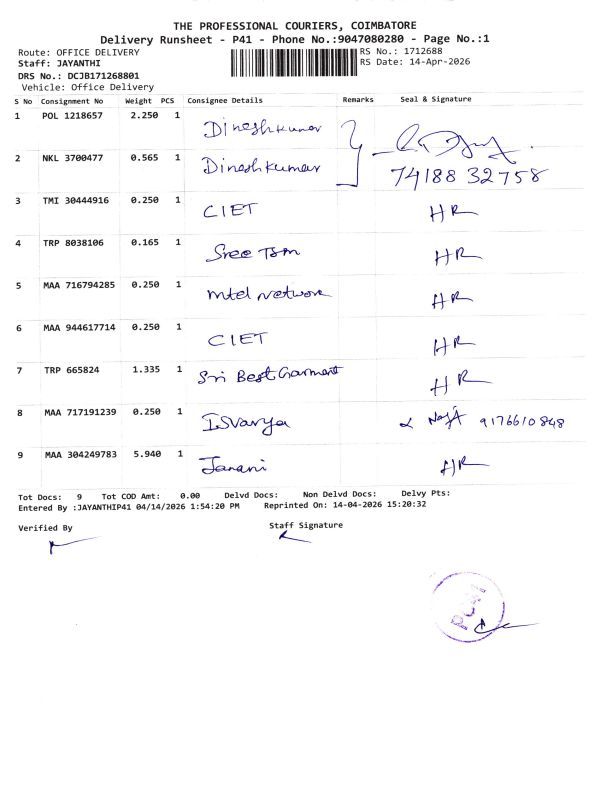 THE PROFESSIONAL COURIERS, COIMBATORE
Delivery Runsheet - P41 - Phone No.:9047080280 - Page No.:1
Route: OFFICE DELIVERY RS No.: 1712688
Staff: JAYANTHI RS Date: 14-Apr-2026
DRS No.: DCJB171268801
Vehicle: Office Delivery
S No Consignment No Weight PCS Consignee Details Remarks Seal & Signature
1 POL 1218657 2.250 1 Dineshkumar
2 NKL 3700477 0.565 1 Dineshkumar 74188 32758
3 TMI 30444916 0.250 1 CIET HR
4 TRP 8038106 0.165 1 Sree Tsm HR
5 MAA 716794285 0.250 1 mtel Network HR
6 MAA 944617714 0.250 1 CIET HR
7 TRP 665824 1.335 1 Sri Best Garment HR
8 MAA 717191239 0.250 1 Isvarya 9176610848
9 MAA 304249783 5.940 1 Janani HR
Tot Docs: 9 Tot COD Amt: 0.00 Delvd Docs: Non Delvd Docs: Delvy Pts:
Entered By :JAYANTHIP41 04/14/2026 1:54:20 PM Reprinted On: 14-04-2026 15:20:32
Verified By Staff Signature